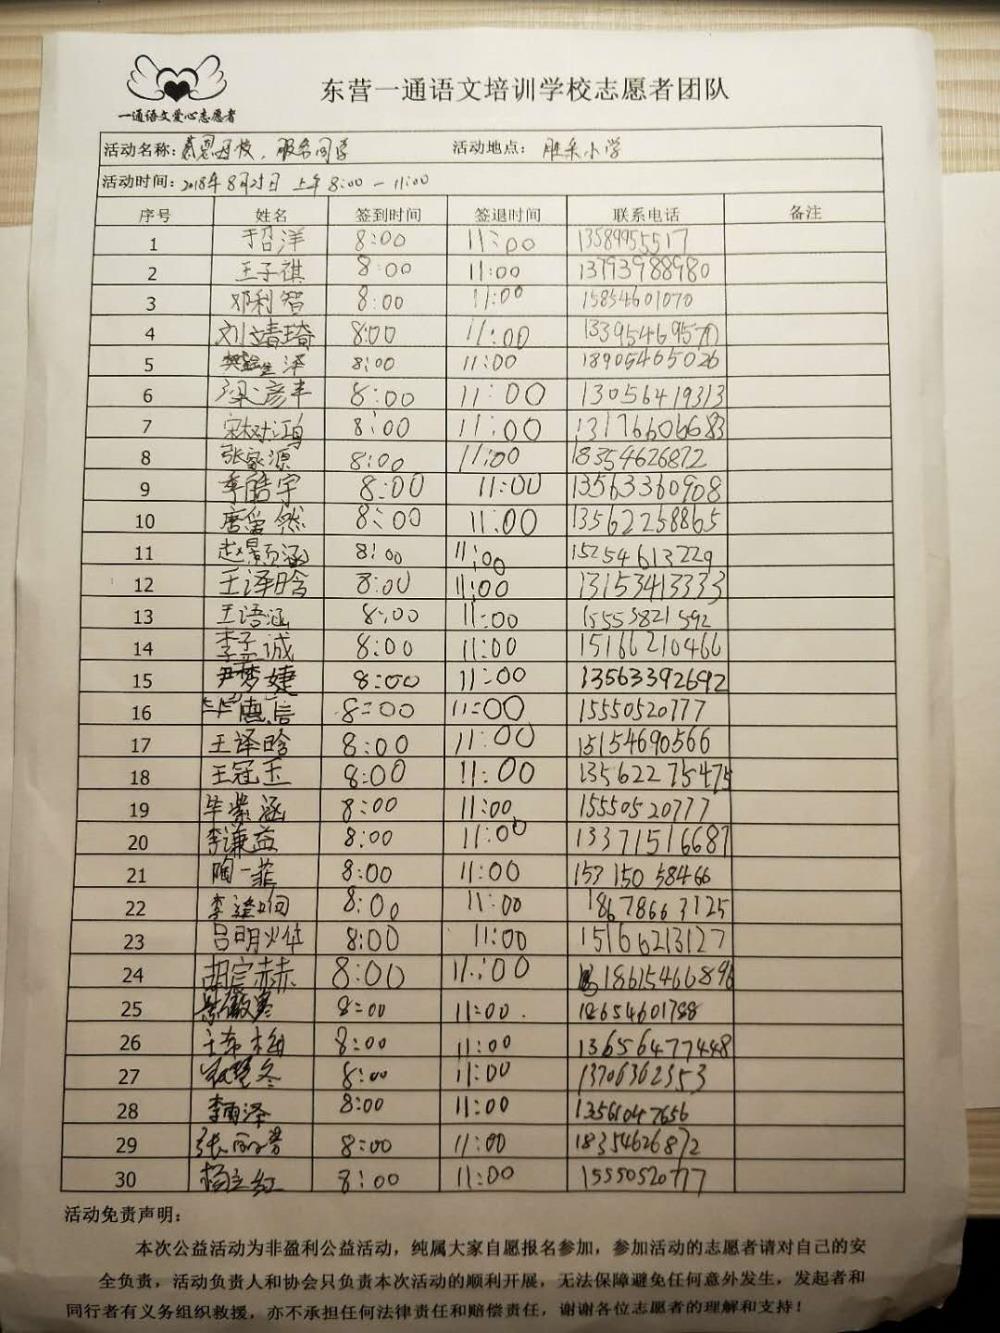 一通语文爱心志愿者
东营一通语文培训学校志愿者团队
活动名称: 感恩母校, 服务同学 活动地点: 胜采小学
活动时间: 2018年8月25日 上午 8:00 — 11:00
序号 姓名 签到时间 签退时间 联系电话 备注
1 于召洋 8:00 11:00 13589955517
2 王子祺 8:00 11:00 13793988980
3 邓利智 8:00 11:00 15854601070
4 刘靖琦 8:00 11:00 13395469570
5 8:00 11:00 18905465026
6 梁彦丰 8:00 11:00 13056419313
7 宋树鸿 8:00 11:00 13176606683
8 张家源 8:00 11:00 18354626872
9 李皓宇 8:00 11:00 13563360908
10 唐留然 8:00 11:00 13562258865
11 赵景涵 8:00 11:00 15254613229
12 王泽晗 8:00 11:00 13153413333
13 王语涵 8:00 11:00 15553821592
14 李奕诚 8:00 11:00 15166210466
15 尹梦婕 8:00 11:00 13563392692
16 毕惠信 8:00 11:00 15550520777
17 王译晗 8:00 11:00 15154690566
18 王冠玉 8:00 11:00 13562275475
19 毕紫涵 8:00 11:00 15550520777
20 李谦益 8:00 11:00 13371516687
21 陶一菲 8:00 11:00
22 8:00 11:00 18678663125
23 吕明烨 8:00 11:00 15166213127
24 胡宸赫 8:00 11:00 18615466896
25 8:00 11:00 18654601788
26 王希梅 8:00 11:00 13656477448
27 8:00 11:00 13706362353
28 李雨泽 8:00 11:00 13561047656
29 张丽芳 8:00 11:00 18354626872
30 杨立红 8:00 11:00 15550520777
活动免责声明:
本次公益活动为非盈利公益活动，纯属大家自愿报名参加，参加活动的志愿者请对自己的安
全负责，活动负责人和协会只负责本次活动的顺利开展，无法保障避免任何意外发生，发起者和
同行者有义务组织救援，亦不承担任何法律责任和赔偿责任，谢谢各位志愿者的理解和支持！